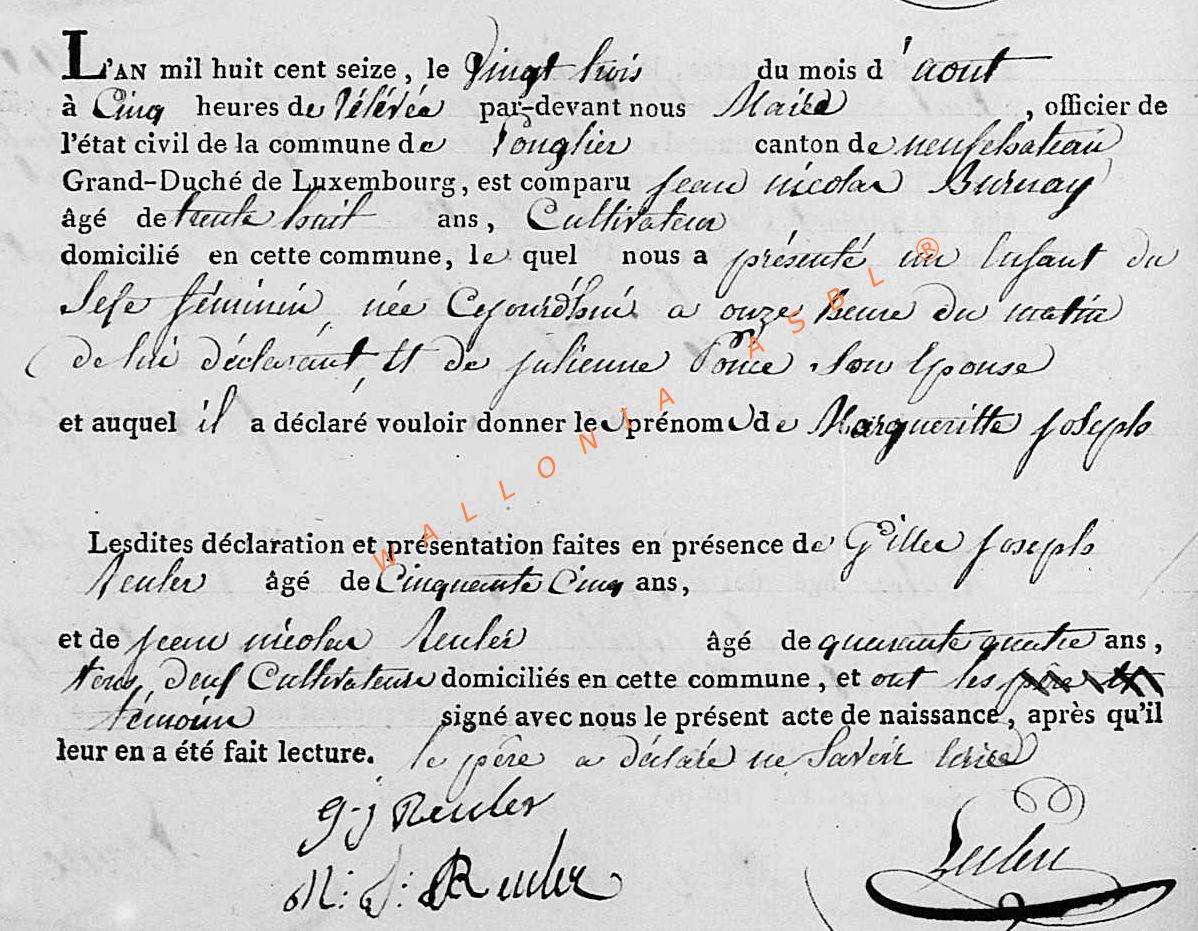 L'AN mil huit cent seize, le Vingt trois du mois d'aout
à Cinq heures de rélévée par-devant nous Maire, officier de
l'état civil de la commune de Longlier canton de neufchateau
Grand-Duché de Luxembourg, est comparu jean nicolas Burnay
âgé de trente huit ans, Cultivateur
domicilié en cette commune, le quel nous a présenté un Enfant du
Sexe féminin, née Cejourd'hui a onze heure du matin
de lui déclarant, Et de julienne Ponce Son Epouse
et auquel il a déclaré vouloir donner le prénom de Margueritte joseph
Lesdites déclaration et présentation faites en présence de Gilles joseph
Reuler âgé de Cinquante Cinq ans,
et de jean nicolas Reuler âgé de quarante quatre ans,
tous deux Cultivateurs domiciliés en cette commune, et ont les père et
témoins signé avec nous le présent acte de naissance, après qu'il
leur en a été fait lecture. le père a déclaré ne Savoir Ecrire
g-j Reuler
N: J: Reuler
WALLONIA ASBL ®